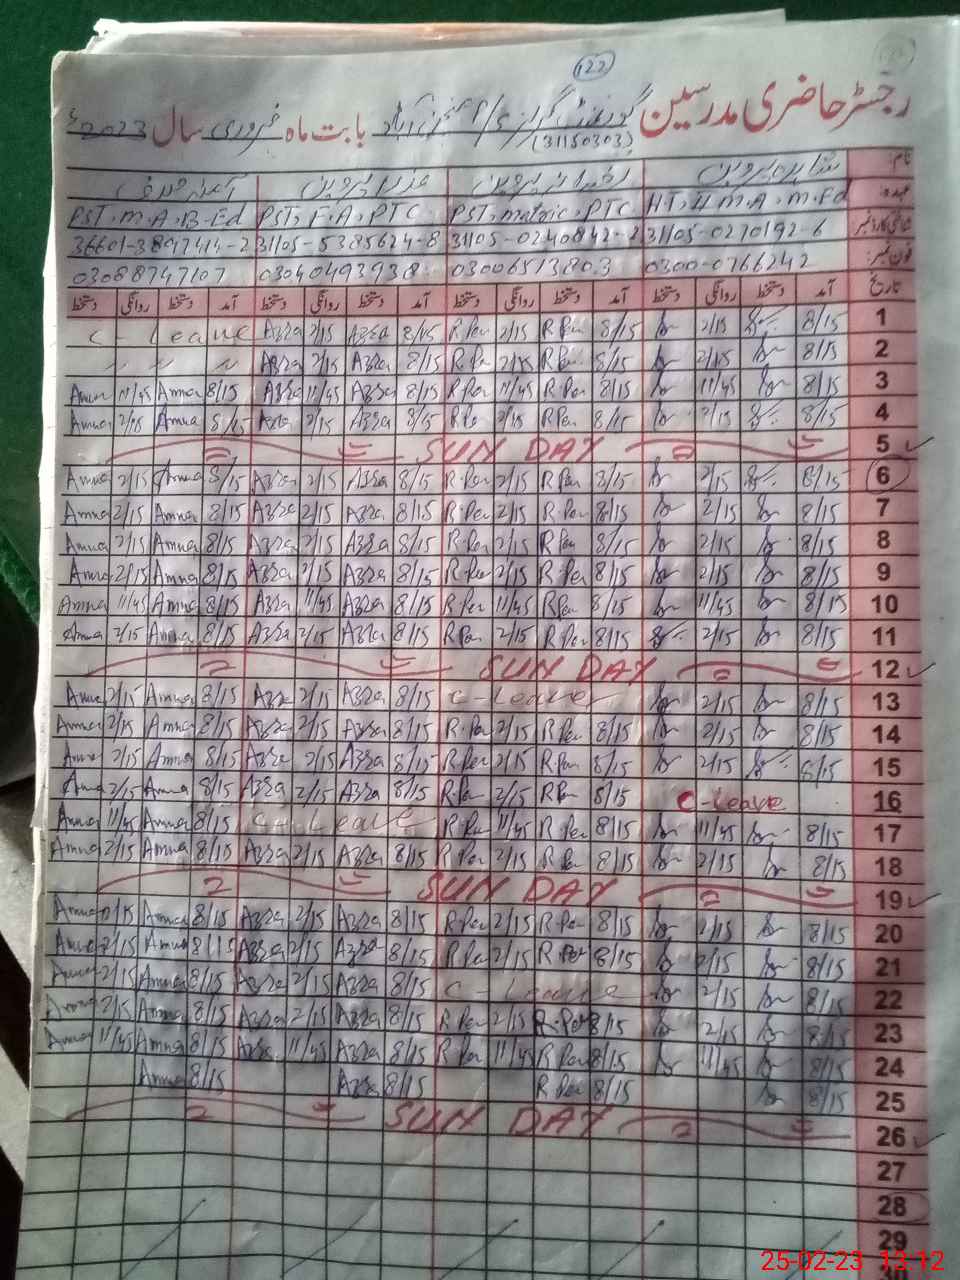 122
رجسٹر حاضری مدرسین گورنمنٹ گرلز بابت ماہ فروری سال 2023ء
(31150303)
نام:
عہدہ:
HT, M.A, M.Ed PST, matric, PTC PST, F.A, PTC PST, M.A, B-Ed
31105-0270192-6 31105-0240842-2 31105-5385624-8 36601-3897414-2
فون نمبر: 0300-0766242 03006513803 03040493938 03088747107
تاریخ آمد دستخط روانگی دستخط آمد دستخط روانگی دستخط آمد دستخط روانگی دستخط آمد دستخط روانگی دستخط
C - Leave Azra 2/15 Azra 8/15 R.Per 2/15 R.Per 8/15 2/15 8/15 1
〃 〃 〃 Azra 2/15 Azra 8/15 R.Per 2/15 R.Per 8/15 2/15 8/15 2
Amna 11/45 Amna 8/15 Azra 11/45 Azra 8/15 R.Per 11/45 R.Per 8/15 11/45 8/15 3
Amna 2/15 Amna 8/15 Azra 2/15 Azra 8/15 R.Per 2/15 R.Per 8/15 2/15 8/15 4
SUN DAY 5
Amna 2/15 Amna 8/15 Azra 2/15 Azra 8/15 R.Per 2/15 R.Per 8/15 2/15 8/15 6
Amna 2/15 Amna 8/15 Azra 2/15 Azra 8/15 R.Per 2/15 R.Per 8/15 2/15 8/15 7
Amna 2/15 Amna 8/15 Azra 2/15 Azra 8/15 R.Per 2/15 R.Per 8/15 2/15 8/15 8
Amna 2/15 Amna 8/15 Azra 2/15 Azra 8/15 R.Per 2/15 R.Per 8/15 2/15 8/15 9
Amna 11/45 Amna 8/15 Azra 11/45 Azra 8/15 R.Per 11/45 R.Per 8/15 11/45 8/15 10
Amna 2/15 Amna 8/15 Azra 2/15 Azra 8/15 R.Per 2/15 R.Per 8/15 2/15 8/15 11
SUN DAY 12
Amna 2/15 Amna 8/15 Azra 2/15 Azra 8/15 C-Leave 2/15 8/15 13
Amna 2/15 Amna 8/15 Azra 2/15 Azra 8/15 R.Per 2/15 R.Per 8/15 2/15 8/15 14
Amna 2/15 Amna 8/15 Azra 2/15 Azra 8/15 R.Per 2/15 R.Per 8/15 2/15 8/15 15
Amna 2/15 Amna 8/15 Azra 2/15 Azra 8/15 R.Per 2/15 R.Per 8/15 C-Leave 16
Amna 11/45 Amna 8/15 C-Leave R.Per 11/45 R.Per 8/15 11/45 8/15 17
Amna 2/15 Amna 8/15 Azra 2/15 Azra 8/15 R.Per 2/15 R.Per 8/15 2/15 8/15 18
SUN DAY 19
Amna 2/15 Amna 8/15 Azra 2/15 Azra 8/15 R.Per 2/15 R.Per 8/15 2/15 8/15 20
Amna 2/15 Amna 8/15 Azra 2/15 Azra 8/15 R.Per 2/15 R.Per 8/15 2/15 8/15 21
Amna 2/15 Amna 8/15 Azra 2/15 Azra 8/15 C - Leave 2/15 8/15 22
Amna 2/15 Amna 8/15 Azra 2/15 Azra 8/15 R.Per 2/15 R.Per 8/15 2/15 8/15 23
Amna 11/45 Amna 8/15 Azra 11/45 Azra 8/15 R.Per 11/45 R.Per 8/15 11/45 8/15 24
Amna 8/15 Azra 8/15 R.Per 8/15 8/15 25
SUN DAY 26
27
28
29
25-02-23 13:12